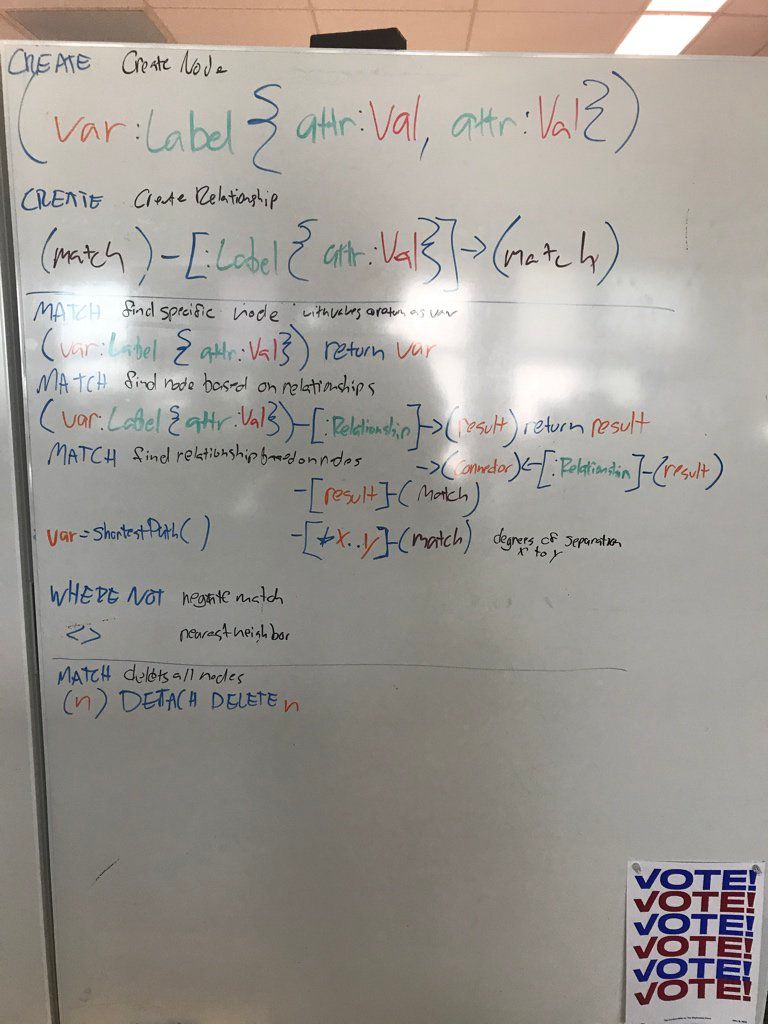 CREATE Create Node
(var:Label { attr:Val, attr:Val})
CREATE Create Relationship
(match)-[:Label { attr:Val}]->(match)
MATCH find specific node with values return as var
(var:Label { attr:Val}) return var
MATCH find node based on relationships
(var:Label{attr:Val})-[:Relationship]->(result) return result
MATCH find relationship based on nodes
->(connector)<-[:Relationship]-(result)
-[result]-(match)
var=shortestPath( )
-[*X..Y]-(match) degrees of separation
x to y
WHERE NOT negate match
<> nearest neighbor
MATCH deletes all nodes
(n) DETACH DELETE n
VOTE!
VOTE!
VOTE!
VOTE!
VOTE!
VOTE!